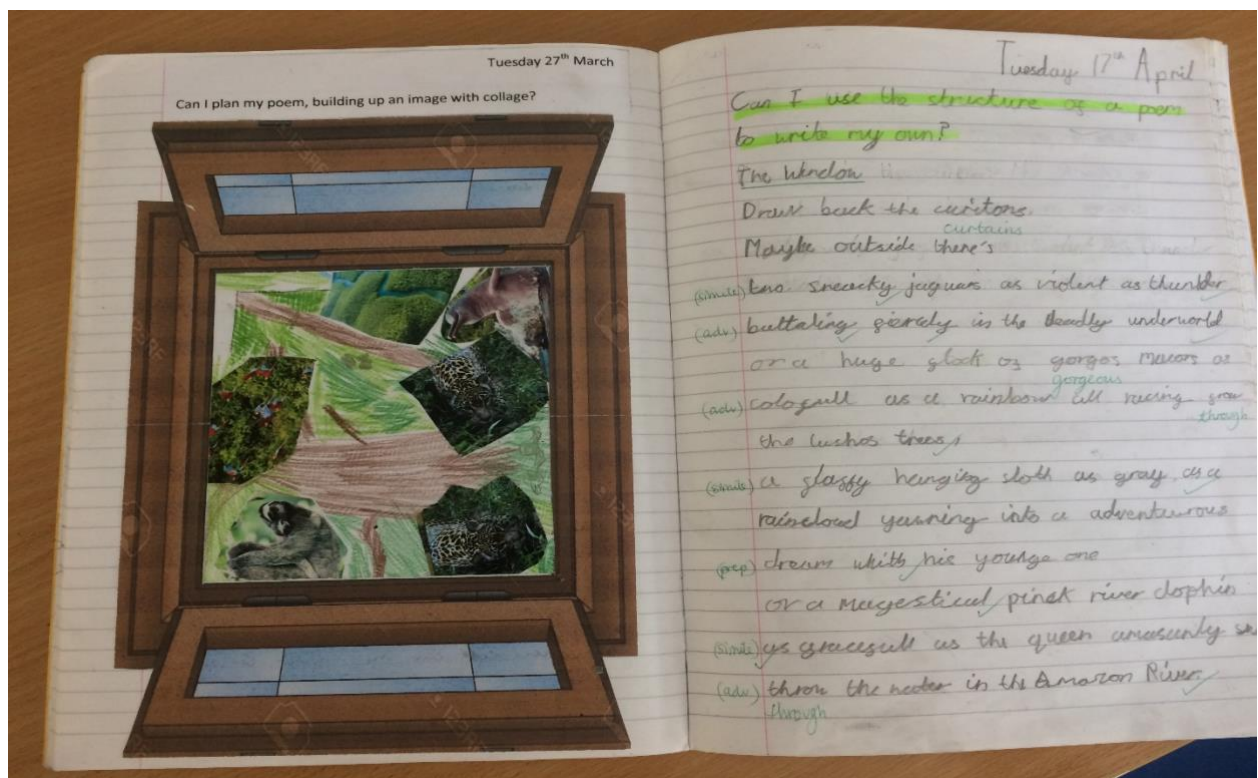 Tuesday 27th March
Can I plan my poem, building up an image with collage?
Tuesday 17th April
Can I use the structure of a poem
to write my own?
The Window
Draw back the
curtains
Maybe outside there's
(simile) two sneacky jaguars as violent as thunder
(adv) in the deadly underworld
or a huge flock of gorgos as
gorgeous
(adv) as a rainbow all racing
through
the lushos trees,
(simile) a hanging sloth as gray as a
raincloud yawning into a
(prep) dream whith his younge one
or a magestical pink river dophin
(simile) as gracefull as the queen
(adv) throw the water in the Amazon River.
through
123RF